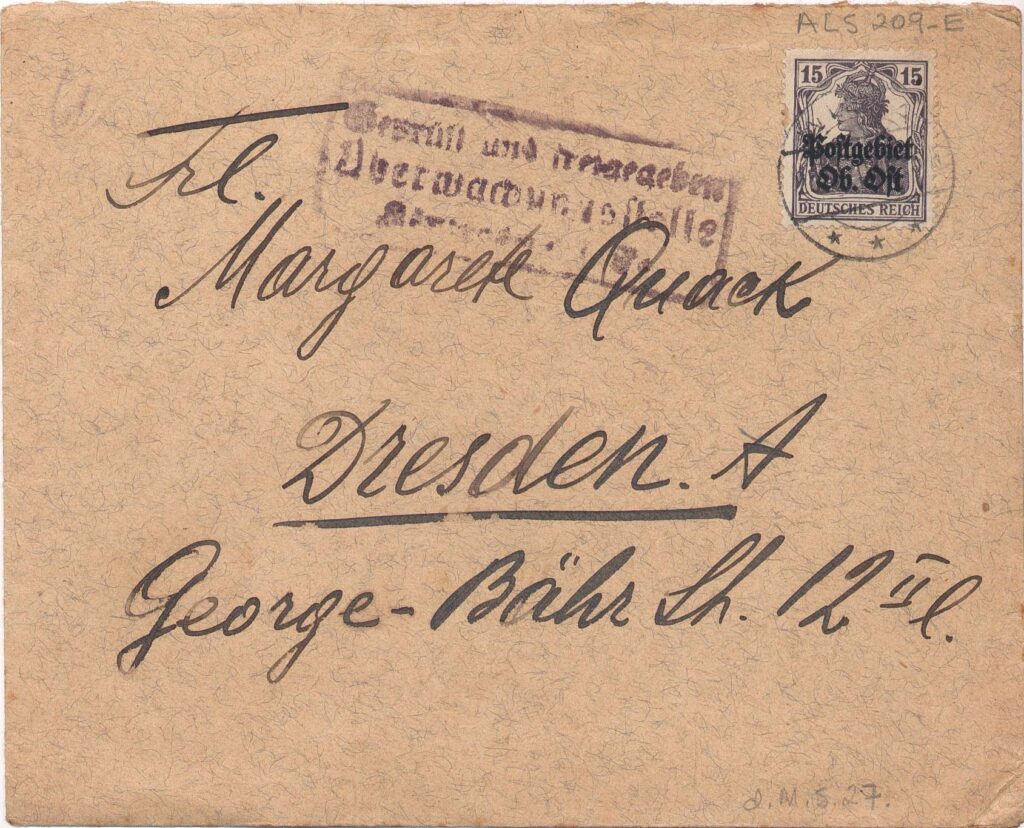 ALS 209-E
15 15
Postgebiet
Ob. Ost
DEUTSCHES REICH
Geprüft und freigegeben
Überwachungsstelle
Frl.
Margarete Quack
Dresden. A
George-Bähr St. 12 II l.
d.M.5.27.